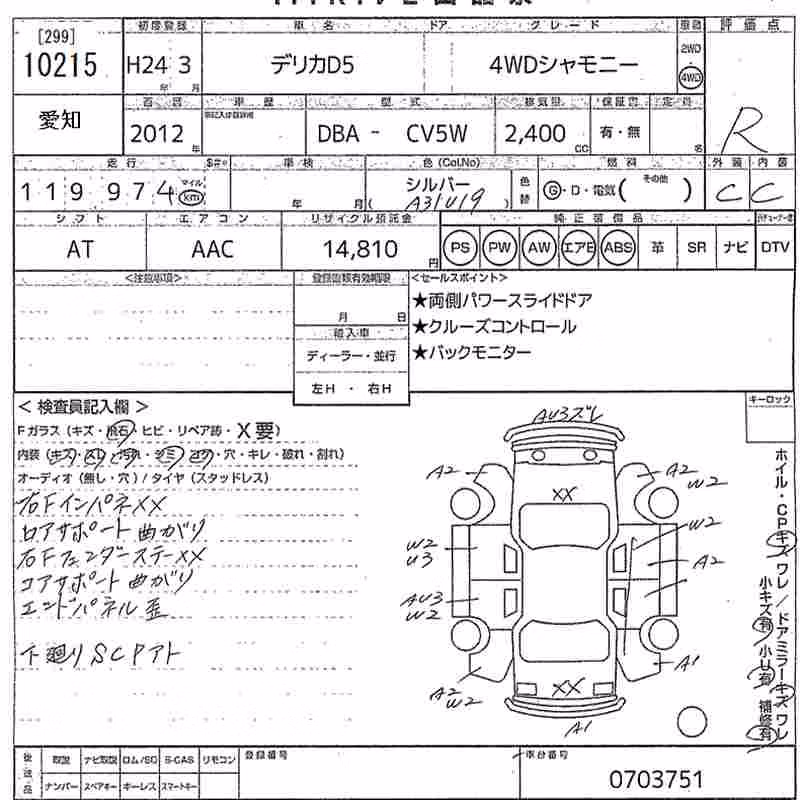 [299]
10215
初度登録 車名 ドア グレード 車歴 評価点
H24 3 デリカD5 4WDシャモニー
年 月
2WD
4WD
R
愛知
車歴 型式 排気量 保証書 定員
2012年 DBA - CV5W 2,400CC 有・無 名
走行 車検 色(Col.No) 燃料 外装 内装
119974 マイル km 年 月 シルバー 色替 G・D・電気( その他 ) C C
( A31U19 )
シフト エアコン リサイクル預託金 純正装備品
AT AAC 14,810円 PS PW AW エアB ABS 革 SR ナビ DTV
<注意事項> <セールスポイント>
★両側パワースライドドア
月 日
★クルーズコントロール
輸入車
★バックモニター
ディーラー・並行
左H ・ 右H
キーロック
< 検査員記入欄 >
Fガラス(キズ・飛石・ヒビ・リペア跡・X要)
内装(キズ・スレ・汚れ・シミ・コゲ・穴・キレ・破れ・割れ)
オーディオ(無し・穴)/タイヤ(スタッドレス)
右FインパネXX
ロアサポート曲がり
右FフェンダーステーXX
コアサポート曲がり
エンドパネル歪
下廻りSCPアト
AU3ズレ
A2 A2
W2
XX
W2
W2
U3
A2
AU3
W2
A1
A2
W2
XX
A1
ホイル・CPキズワレ/ドアミラーキズワレ
小キズ有 小U有 補修有
後送品 取説 ナビ取説 ロム/SD S-CAS リモコン 登録番号 車台番号
ナンバー スペアキー キーレス スマートキー
0703751